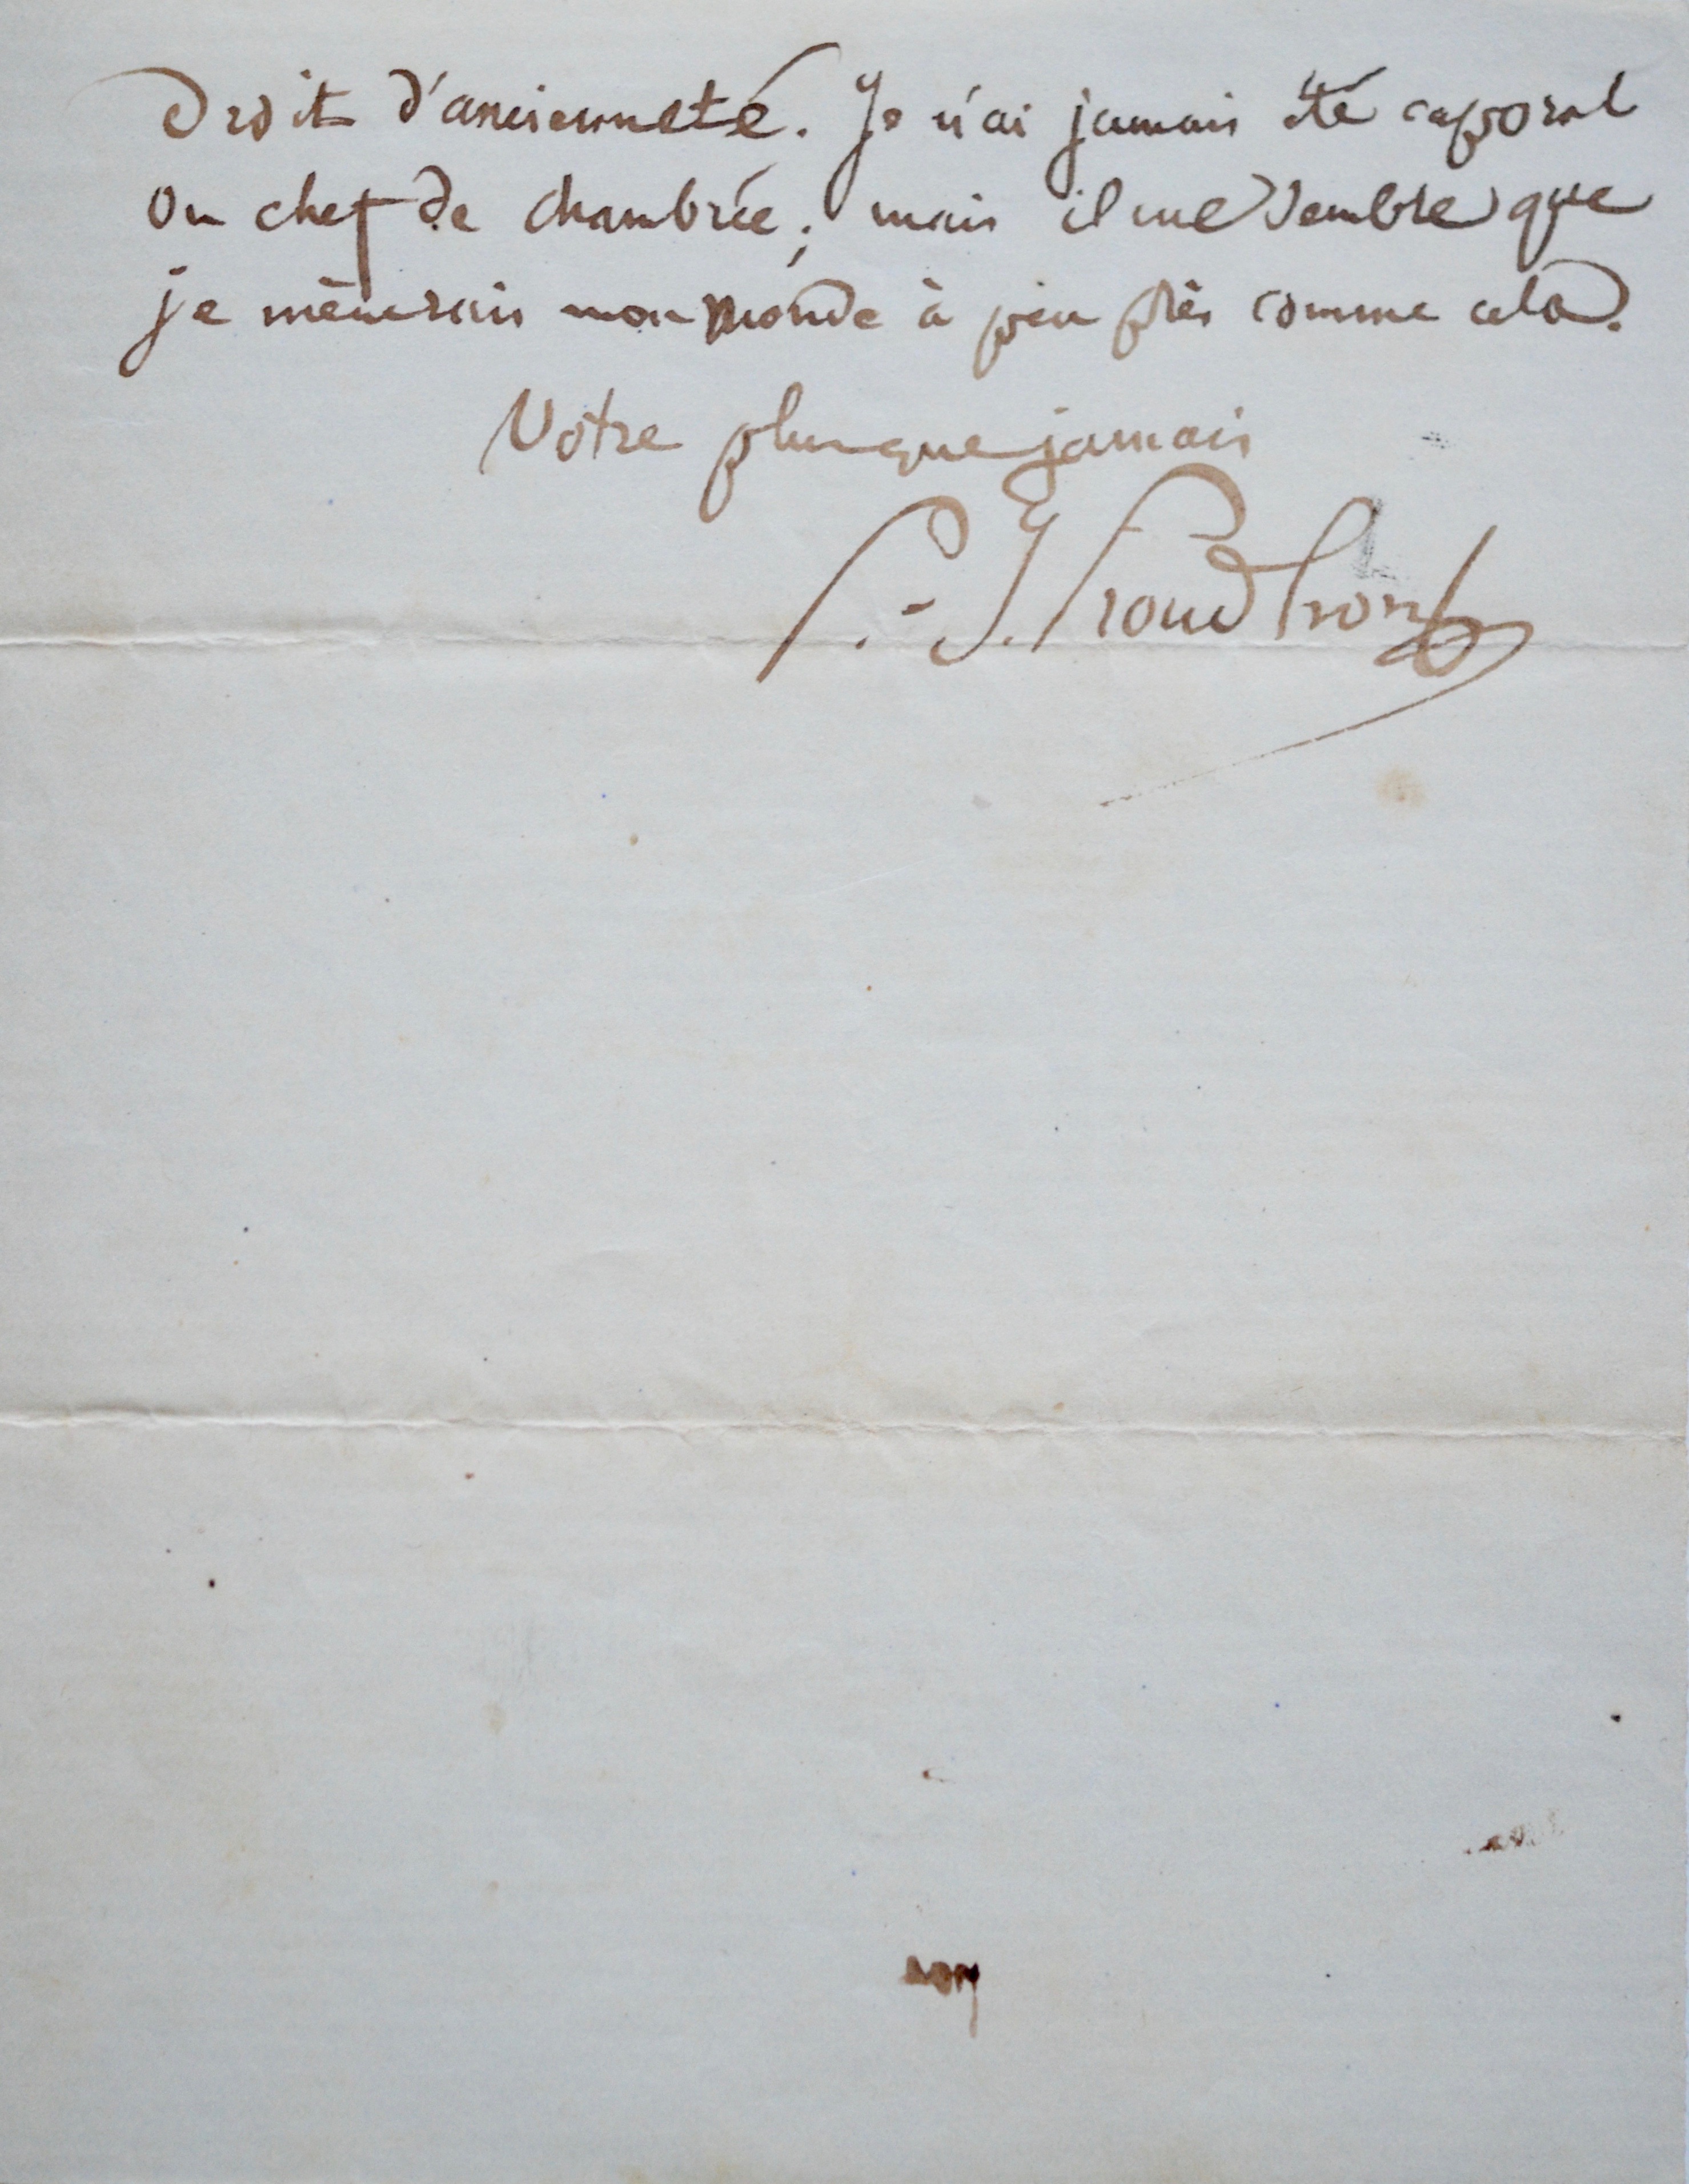 Droit d'ancienneté. Je n'ai jamais été caporal
ou chef de chambrée; mais il me semble que
je mènerais mon monde à peu près comme cela.
Votre plus que jamais
P.-J. Proudhon